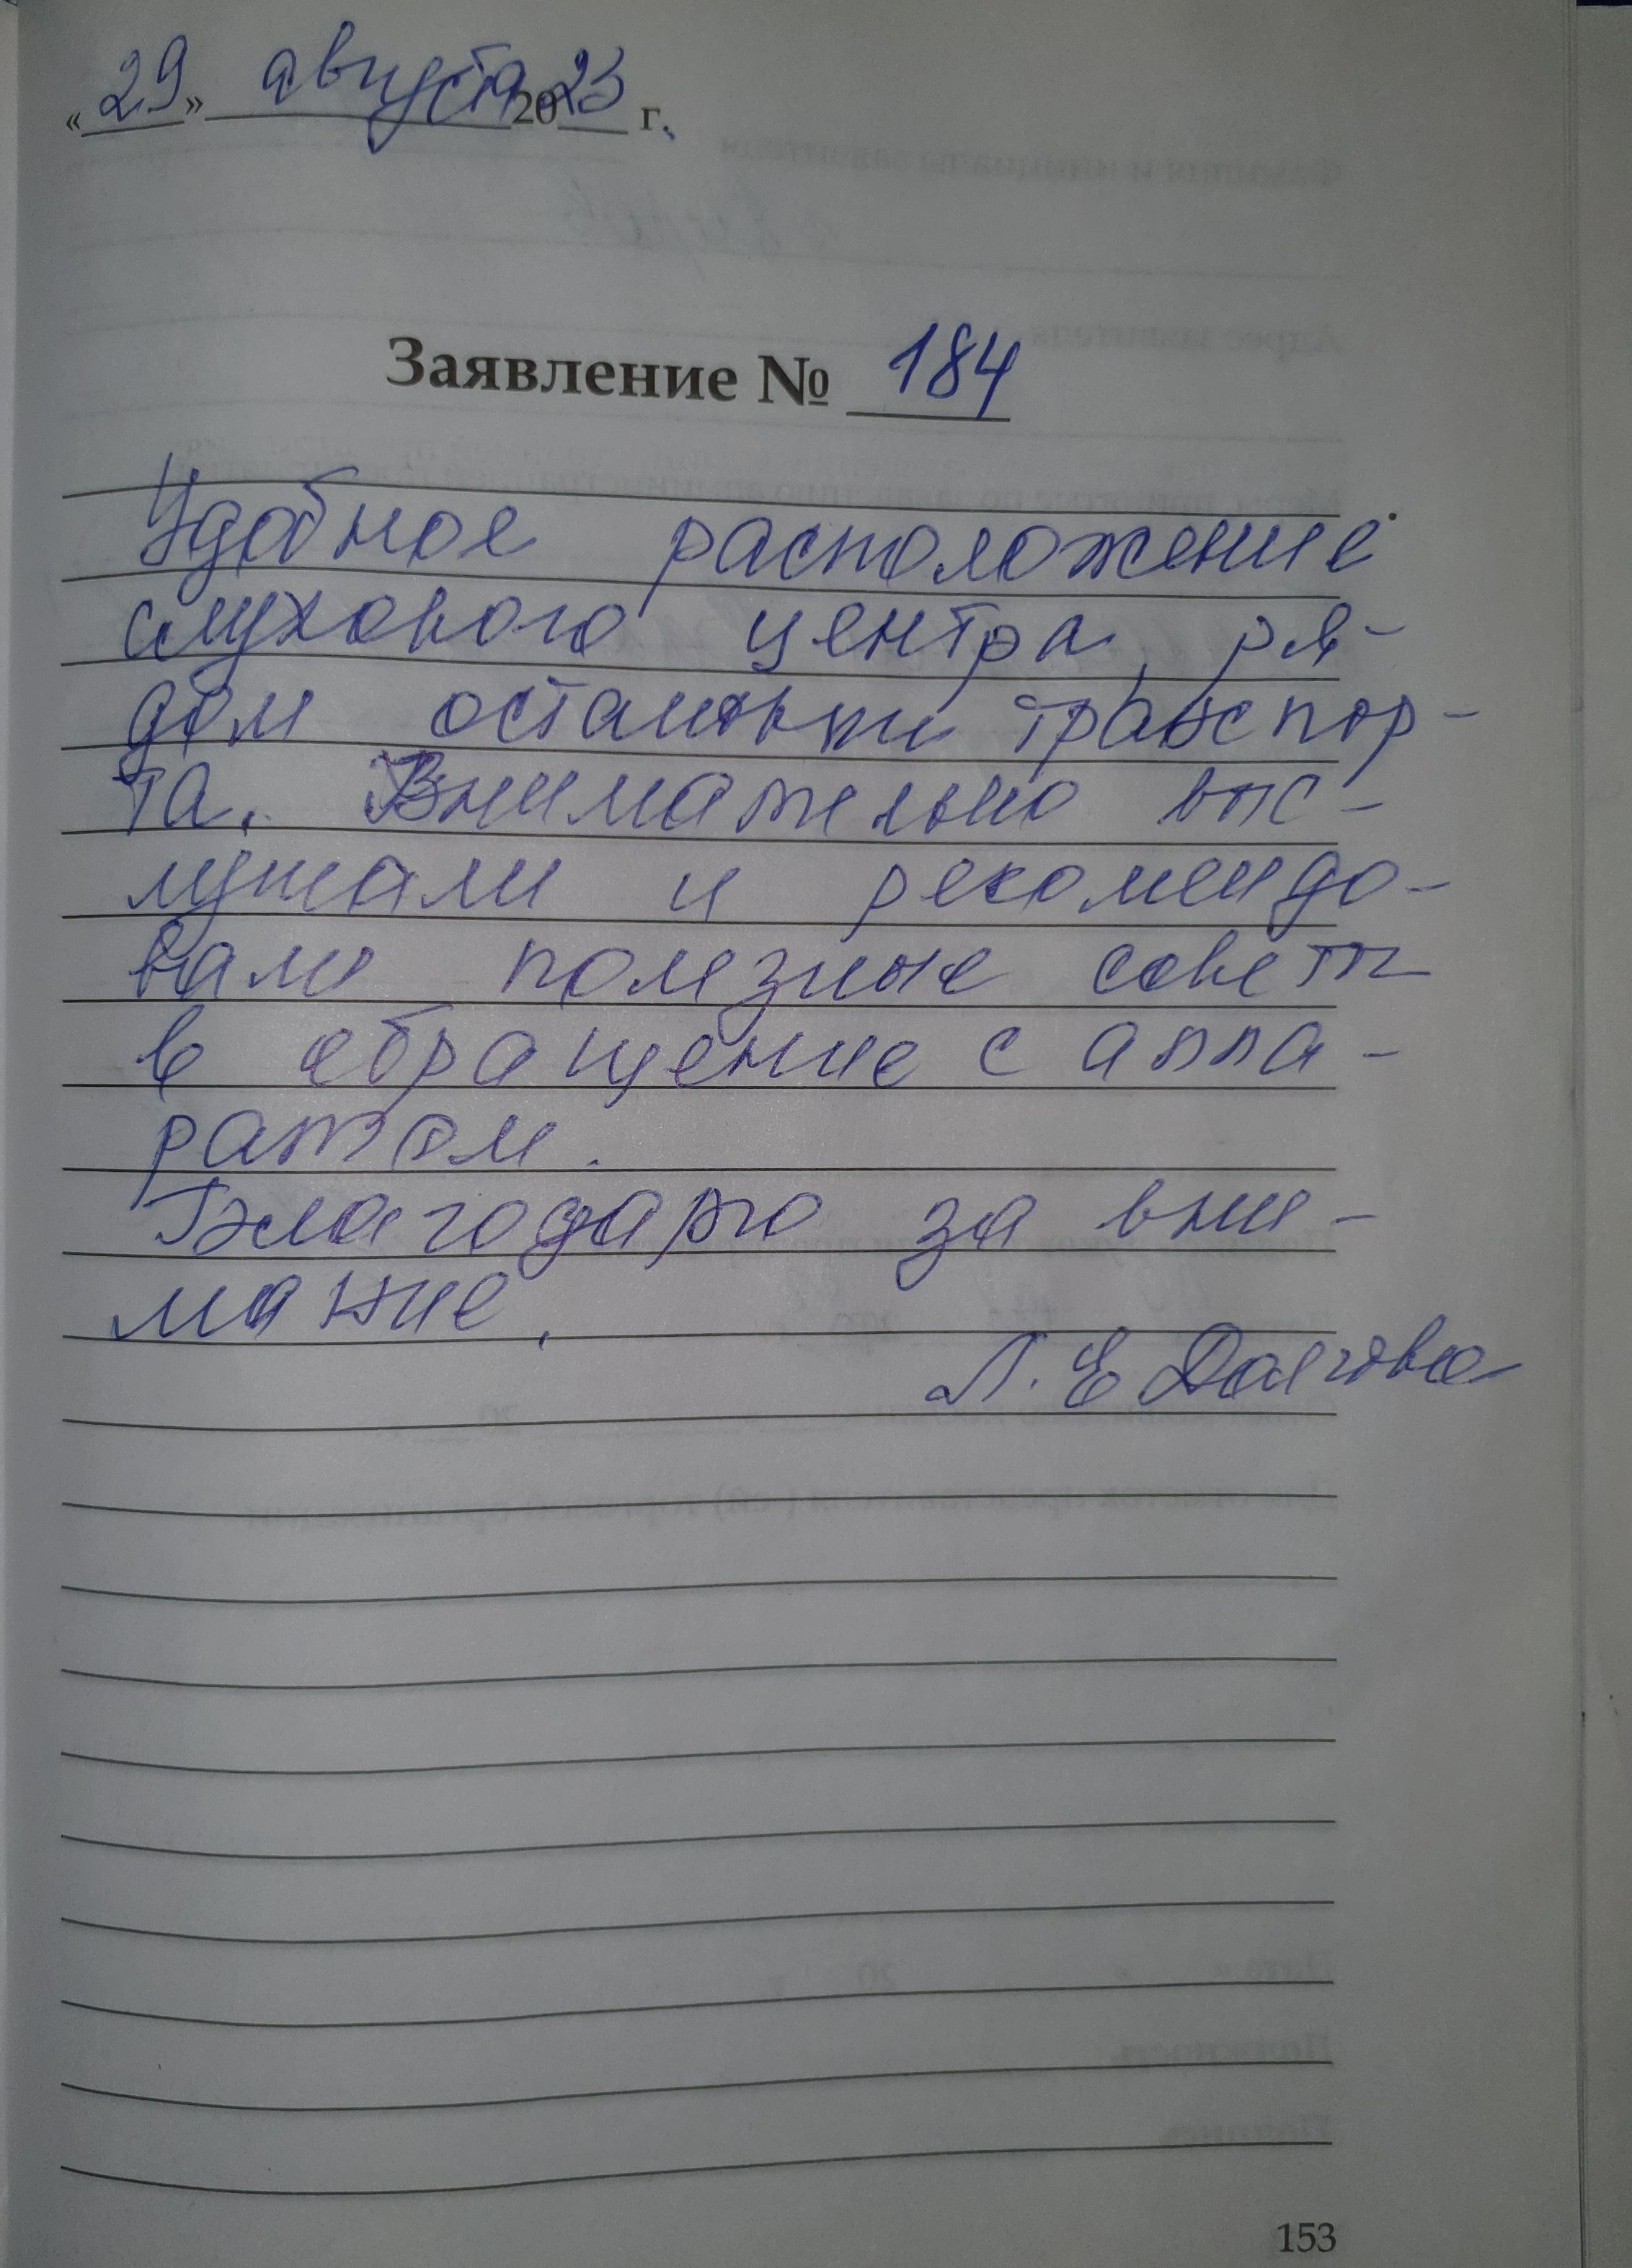 «29» августа 2023 г.
Заявление № 184
Удобное расположение
слухового центра, ря-
дом остановки транспор-
та. Внимательно выс-
лушали и рекомендо-
вали полезные советы
в обращение с аппа-
ратом.
Благодарю за вни-
мание.
Л. Е Долгова
153